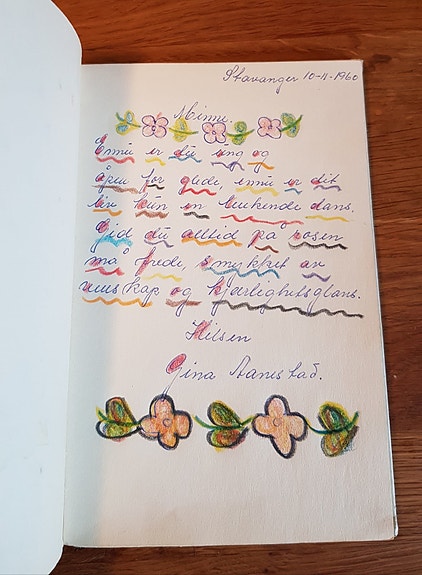 Stavanger 10-11-1960
Minne.
Ennu er du ung og
åpen for glede, ennu er dit
liv kun en leukende dans.
Gid du alltid på rosen
må frede, smykket av
uuskap og kjærlighetsglans.
Hilsen
Gina